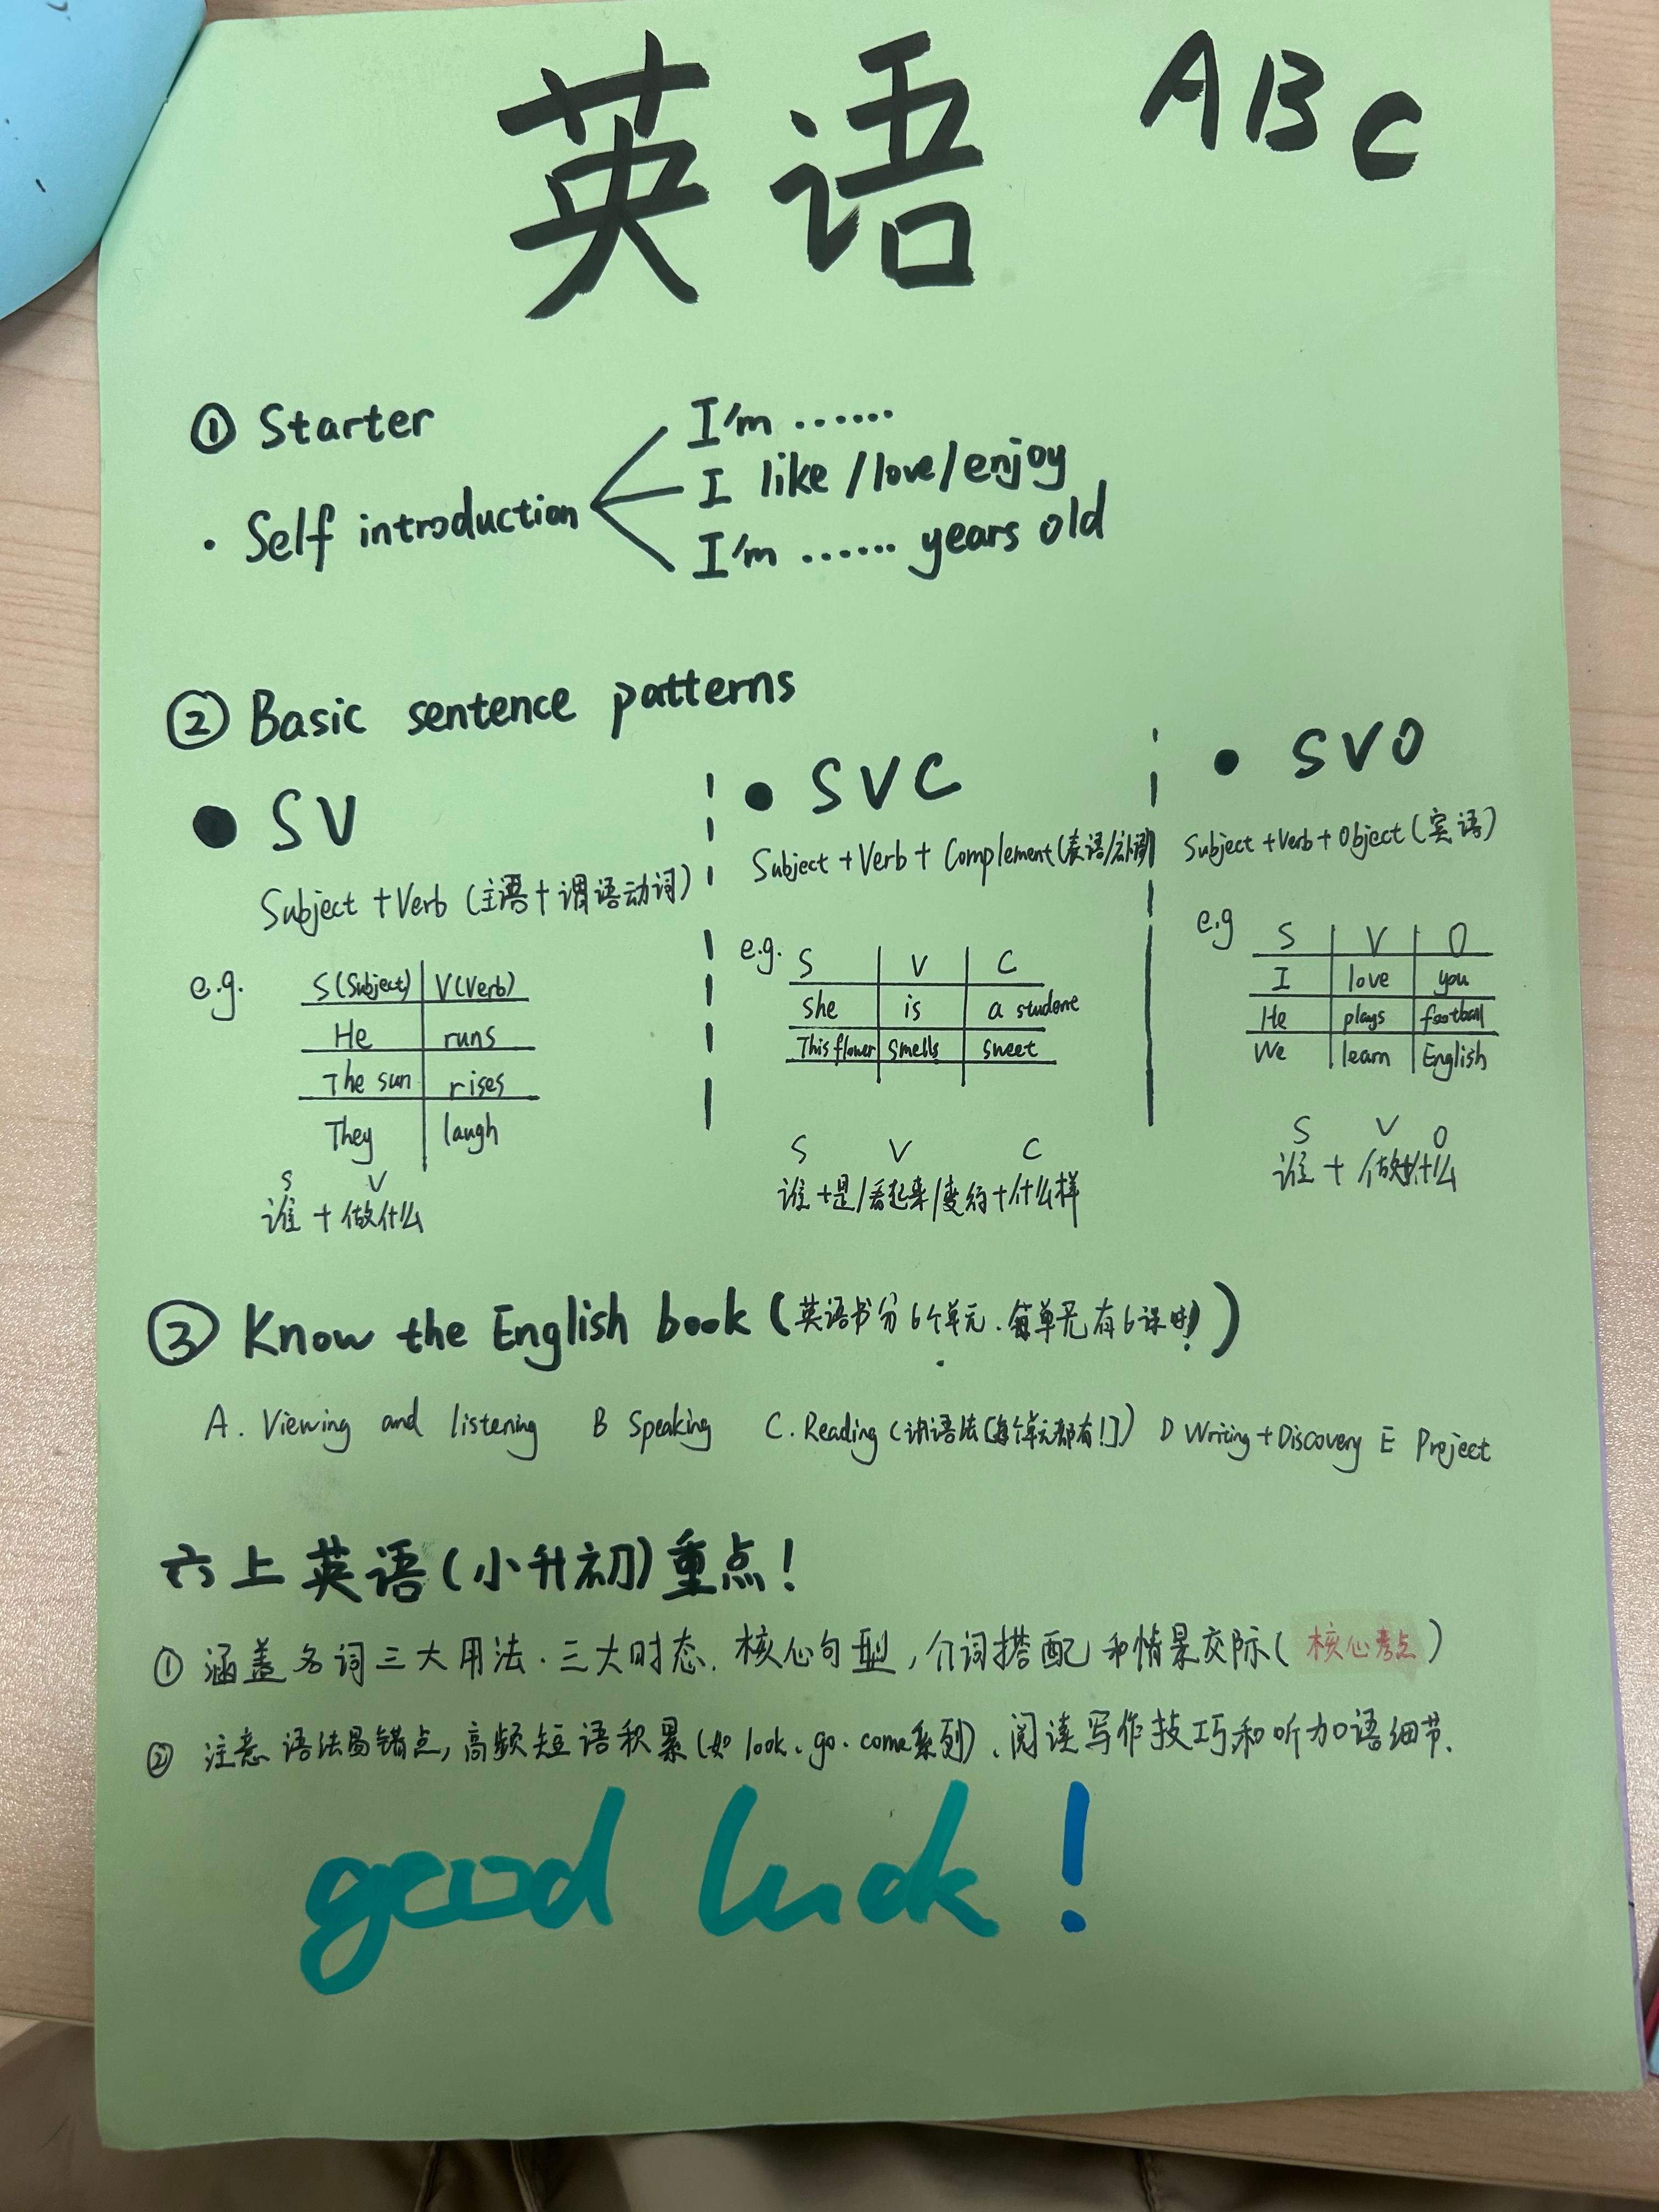 英语 ABC
① Starter
· Self introduction
I'm ·······
I like/love/enjoy
I'm ······ years old
② Basic sentence patterns
● SV
Subject+Verb(主语+谓语动词)
e.g.
S(Subject) V(Verb)
He runs
The sun rises
They laugh
S V
谁+做什么
● SVC
Subject+Verb+Complement(表语/补语)
e.g. S V C
She is a student
This flower smells sweet
S V C
谁+是/看起来/变得+什么样
● SVO
Subject+Verb+Object(宾语)
e.g S V O
I love you
He plays football
We learn English
S V O
谁+做什么
③ Know the English book(英语书分6个单元.每单元有6课时!)
A. Viewing and listening B Speaking C. Reading(讲语法[每个单元都有!]) D Writing+Discovery E Project
六上英语(小升初)重点!
① 涵盖名词三大用法.三大时态.核心句型,介词搭配和情景交际(核心考点)
② 注意语法易错点,高频短语积累(如look、go、come系列)、阅读写作技巧和听力口语细节.
good luck!